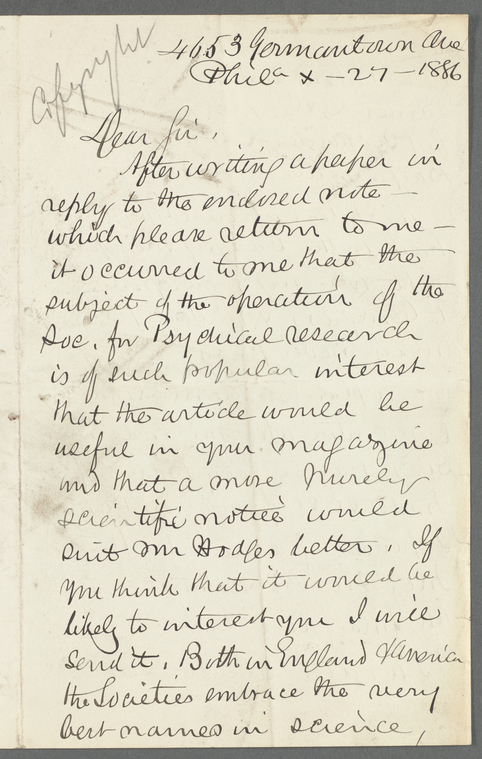 Copyright
4653 Germantown Ave
Phila x - 27 - 1886
Dear Sir,
After writing a paper in
reply to the enclosed note -
which please return to me -
it occurred to me that the
subject of the operation of the
Soc. for Psychical research
is of such popular interest
that the article would be
useful in your magazine
and that a more purely
scientific notice would
suit Mr Hodges better. If
you think that it would be
likely to interest you I will
send it. Both in England & America
the Societies embrace the very
best names in science,